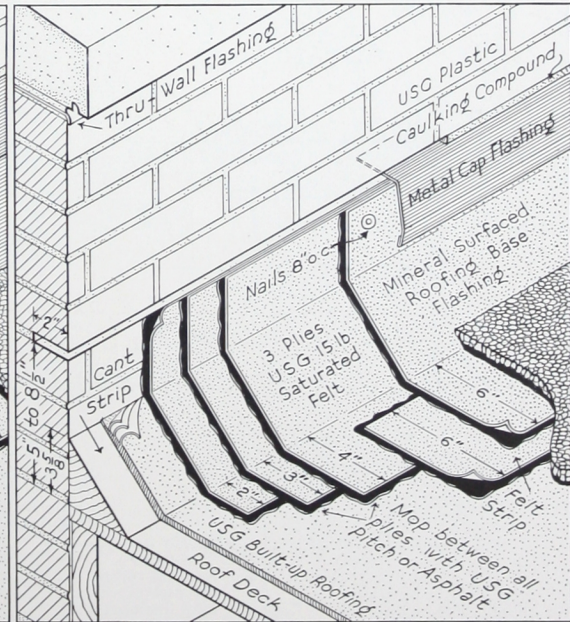 Thru Wall Flashing
USG Plastic
Caulking Compound
Metal Cap Flashing
Nails 8"o.c.
©
Mineral Surfaced
Roofing Base
Flashing
2"
Cant
Strip
3 Plies
USG 15 lb
Saturated
Felt
5" to 8 1/2"
3 5/8"
6"
6"
4"
3"
2"
Felt
Strip
Mop between all
plies with USG
Pitch or Asphalt
USG Built-up Roofing
Roof Deck